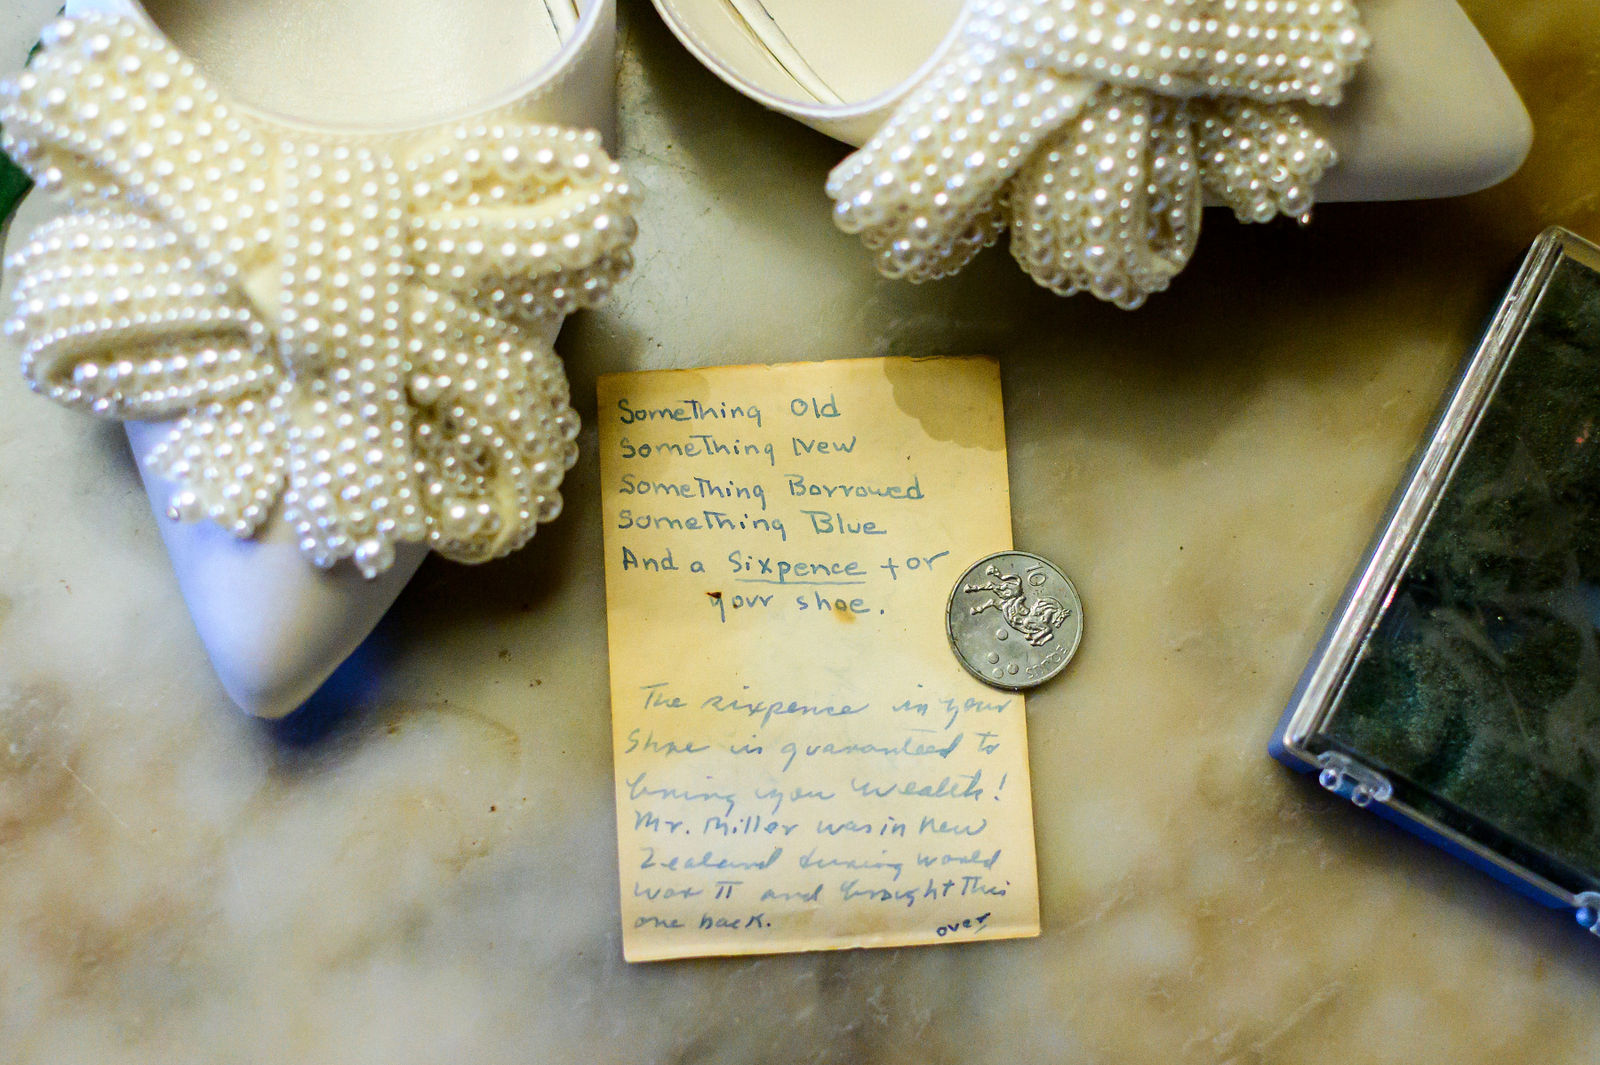 Something Old
Something New
Something Borrowed
Something Blue
And a Sixpence for
your shoe.
The sixpence in your
Shoe is guaranteed to
bring you wealth!
Mr. Miller was in New
Zealand during world
war II and brought This
one back.
over
10